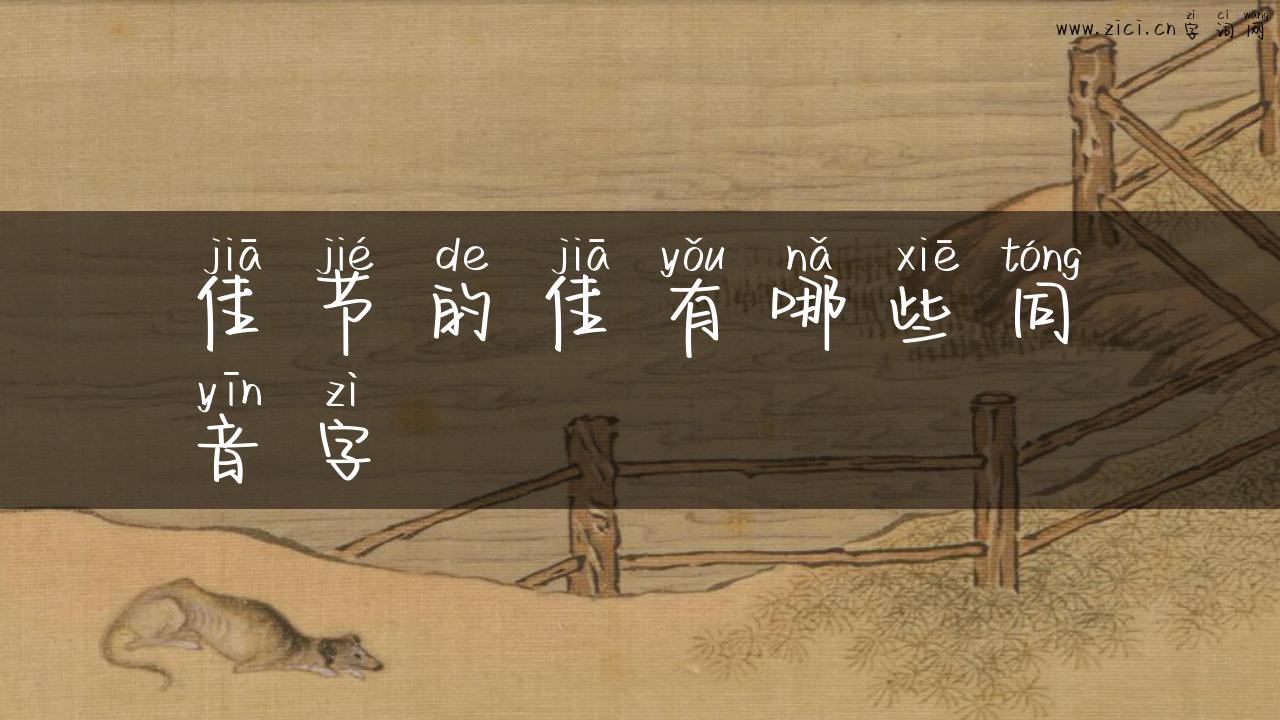 zì cí wǎng
www.zici.cn 字词网
jiā jié de jiā yǒu nǎ xiē tóng
佳节的佳有哪些同
yīn zì
音字